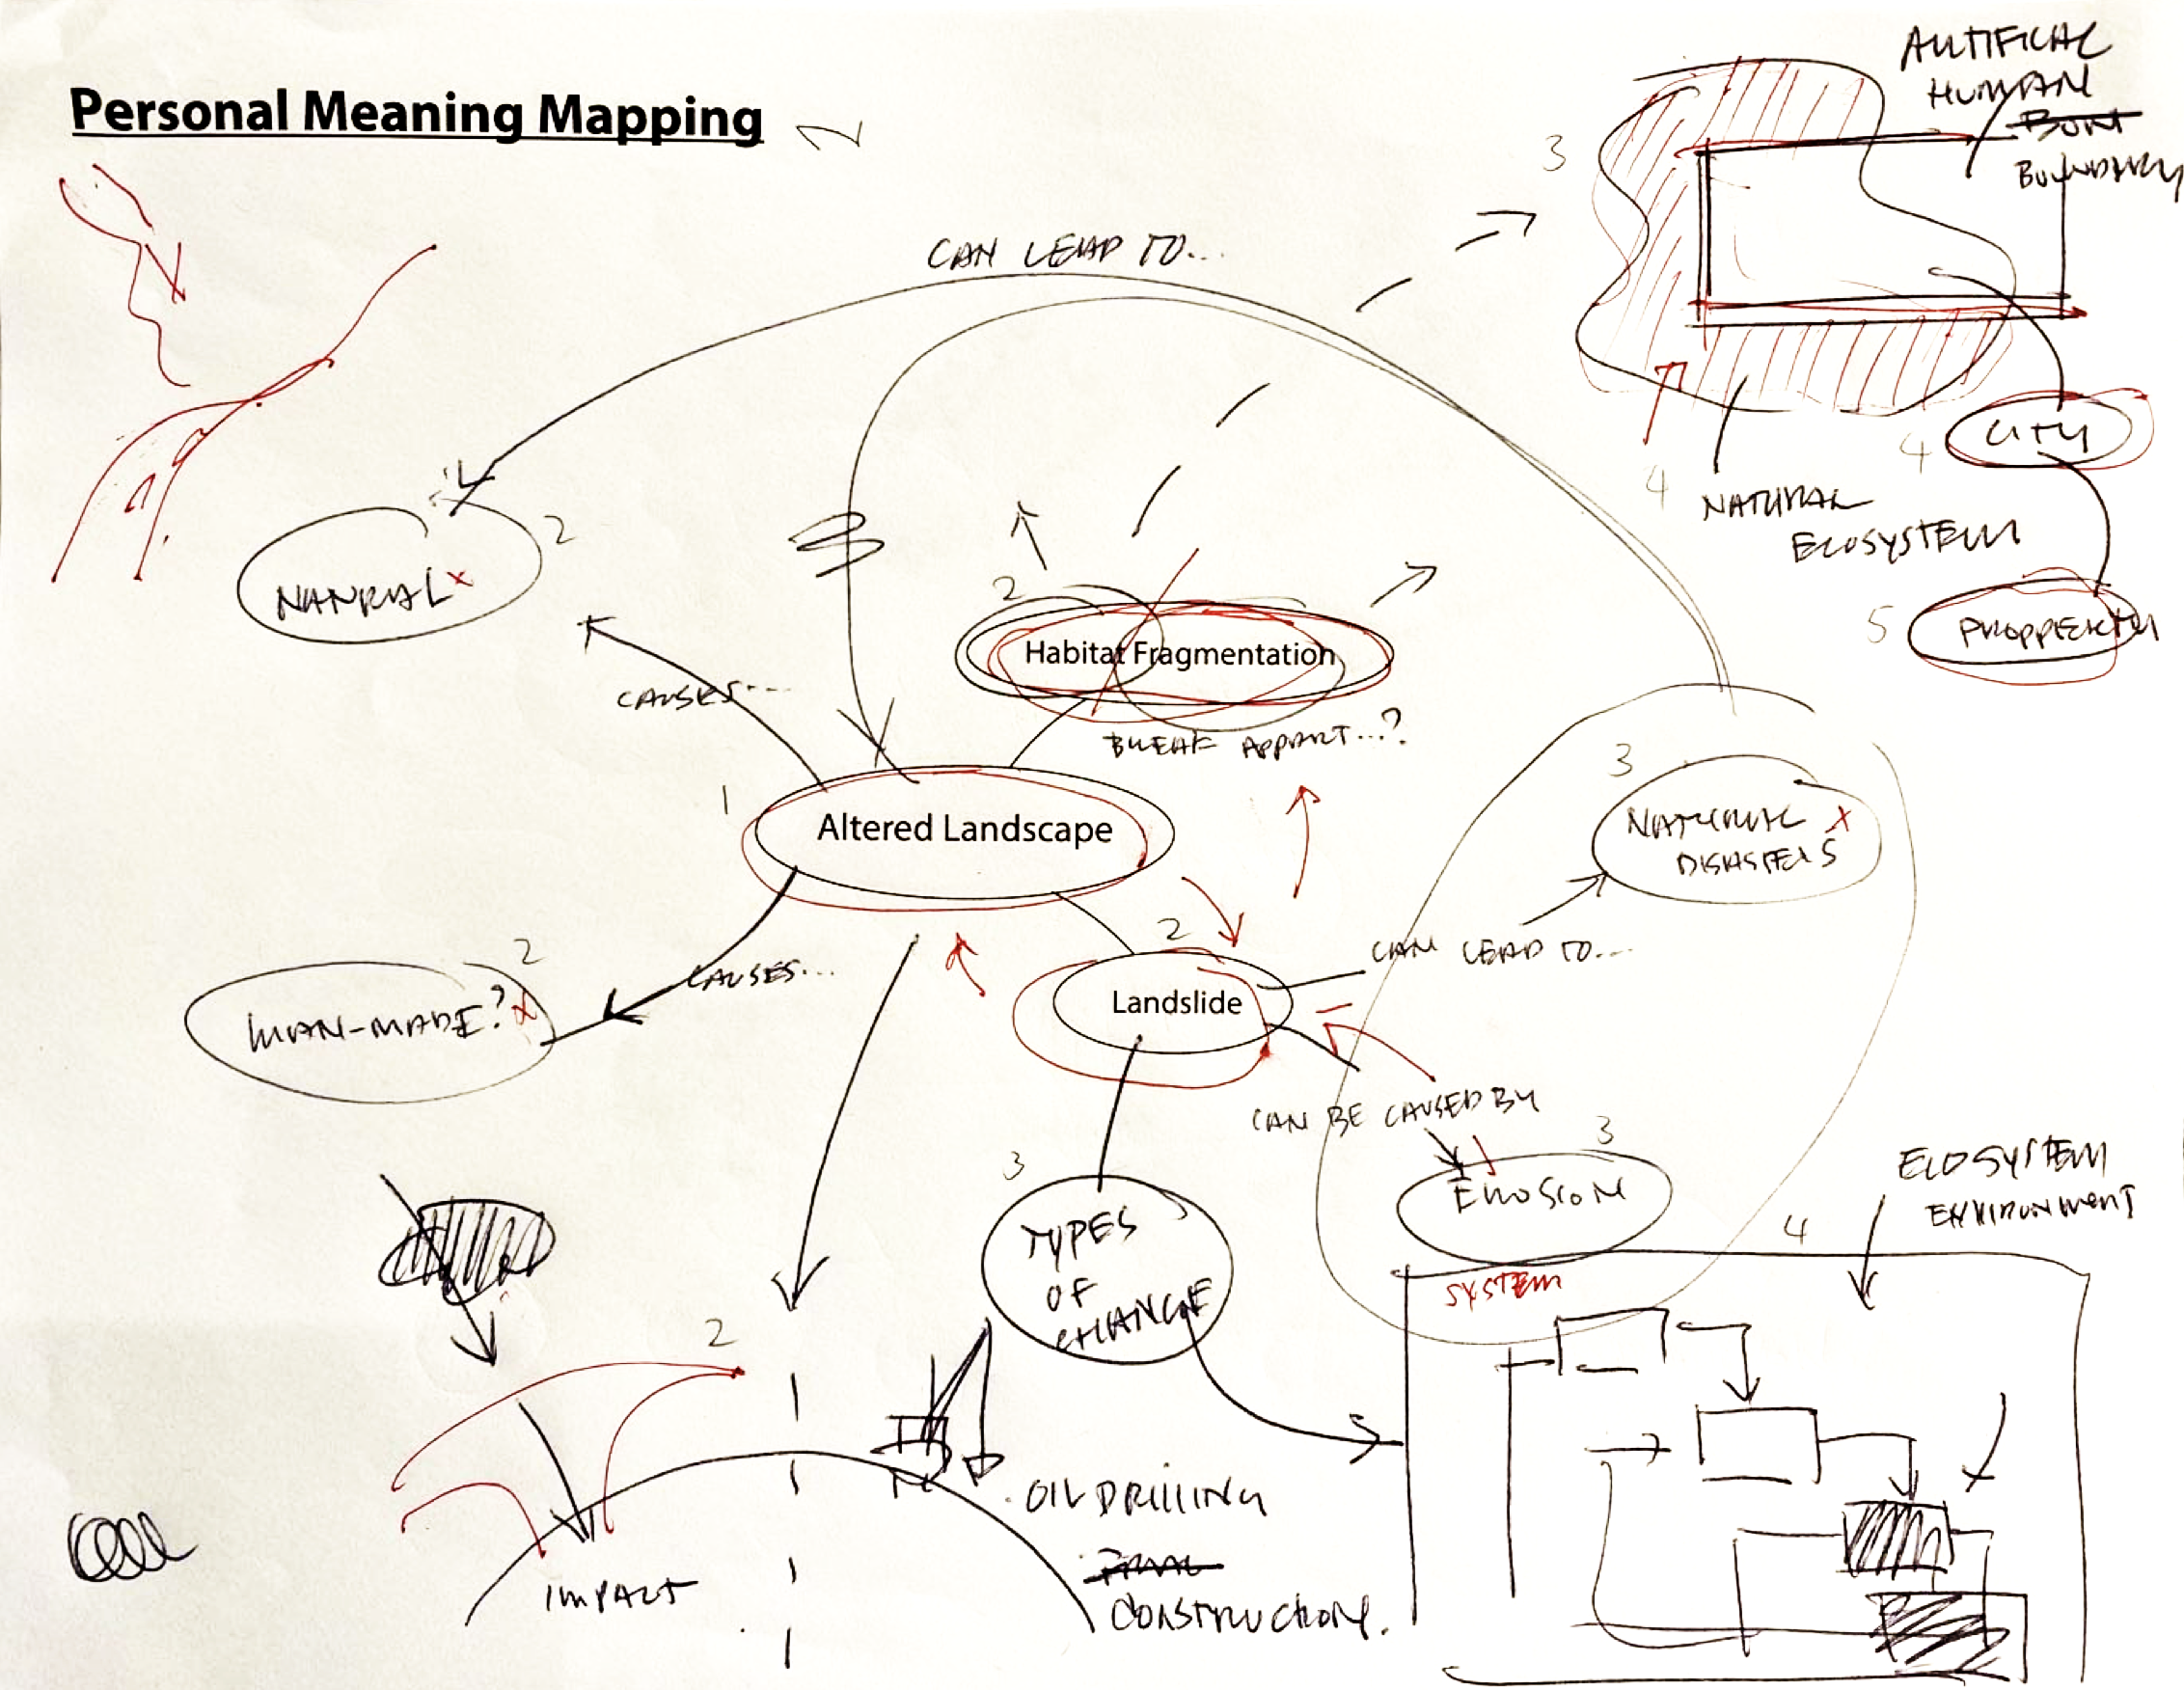 Personal Meaning Mapping
ARTIFICAL
HUMAN
BOUNDARY
3
CAN LEAD TO...
CITY
4
4
NATURAL
ECOSYSTEM
2
NANRUAL x
2
Habitat Fragmentation
PROPPERTY
5
CAUSES...
BREAK APPART...?
3
NATURAL x
DISASTERS
1
Altered Landscape
2
2
CAN LEAD TO...
CAUSES...
MAN-MADE? x
Landslide
CAN BE CAUSED BY
3
3
EROSION
ECOSYSTEM
ENVIRONMENT
4
TYPES
OF
CHANGE
SYSTEM
2
OIL DRILLING
IMPACT
CONSTRUCTION.